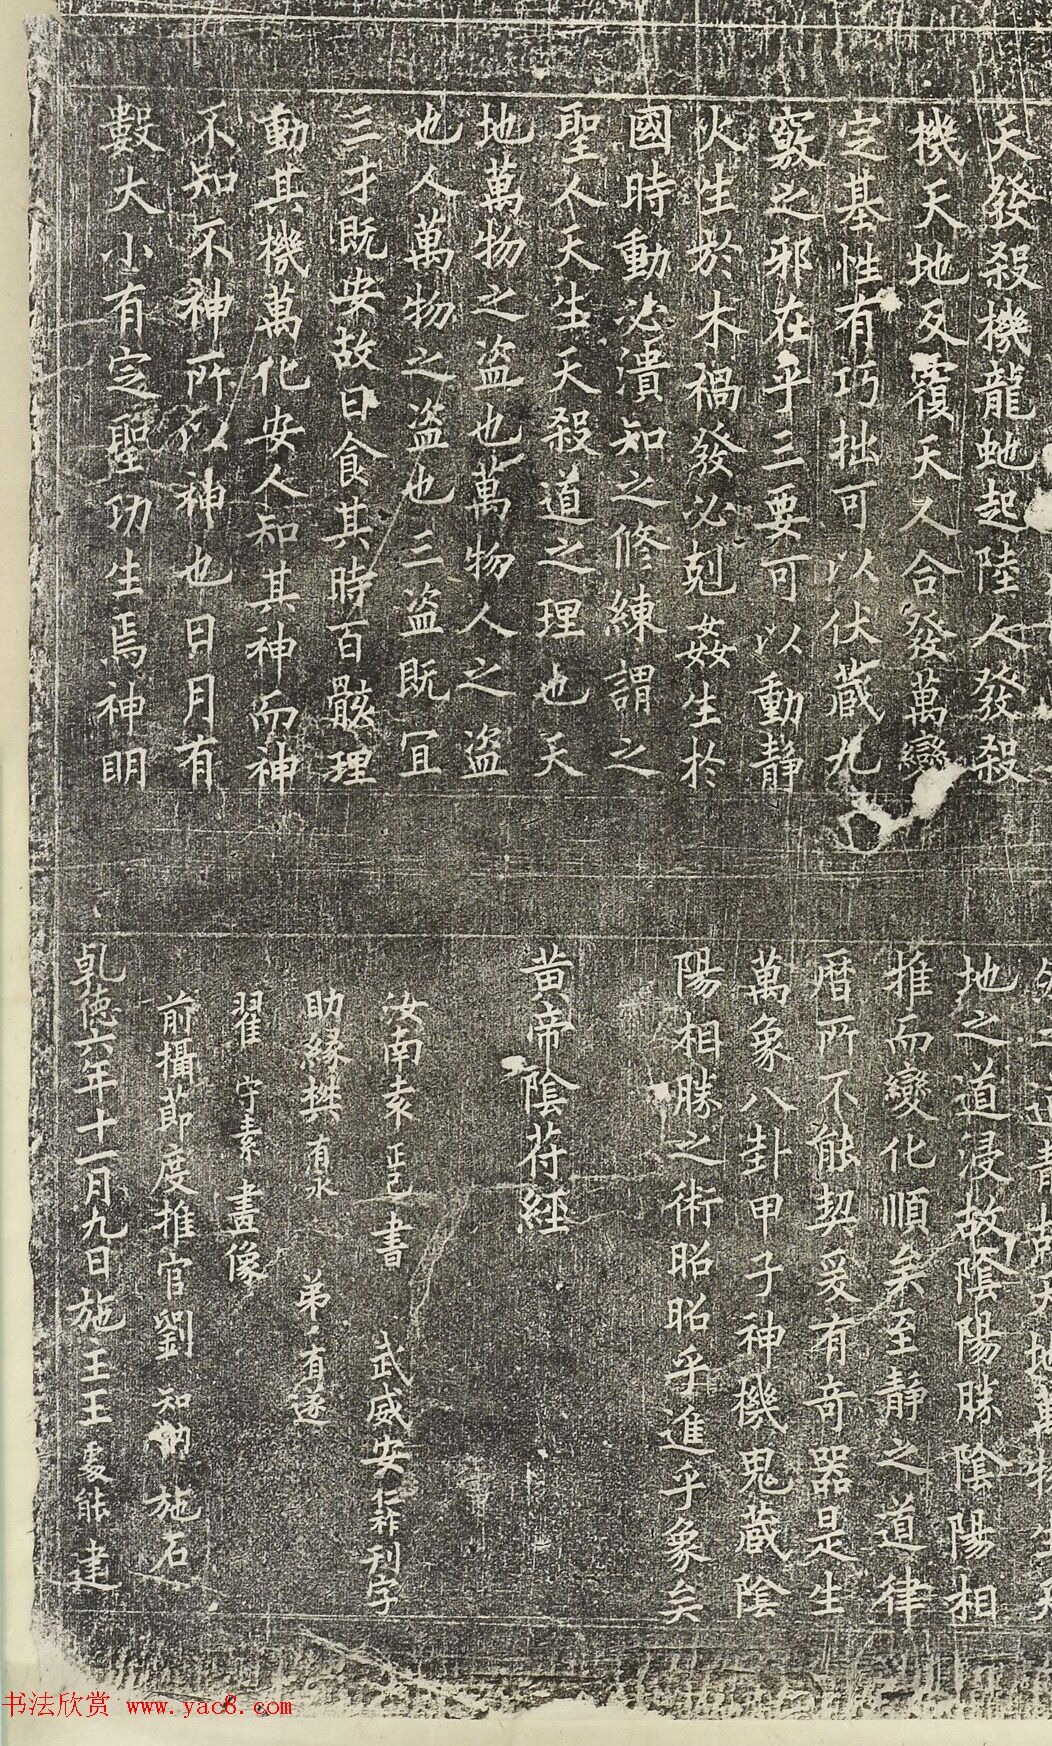 天發殺機龍虵起陸人發殺
機天地反覆天人合發萬變
定基性有巧拙可以伏藏九
竅之邪在乎三要可以動靜
火生於木禍發必剋姦生於
國時動必潰知之修練謂之
聖人天生天殺道之理也天
地萬物之盜也萬物人之盜
也人萬物之盜也三盜既宜
三才既安故曰食其時百骸理
動其機萬化安人知其神而神
不知不神所以神也日月有
數大小有定聖功生焉神明
之道靜故天地萬物生天
地之道浸故陰陽勝陰陽相
推而變化順矣至靜之道律
曆所不能契爰有奇器是生
萬象八卦甲子神機鬼藏陰
陽相勝之術昭昭乎進乎象矣
黄帝陰符經
汝南袁正己書 武威安仁祚刊字
助緣樊有永 弟有遂
翟守素畫像
前攝節度推官劉知訥施石
乹德六年十一月九日施主王處能建
书法欣赏 www.yac8.com